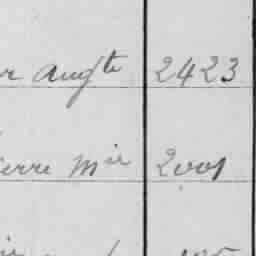 r Augte 2423
ierre Mie 2001